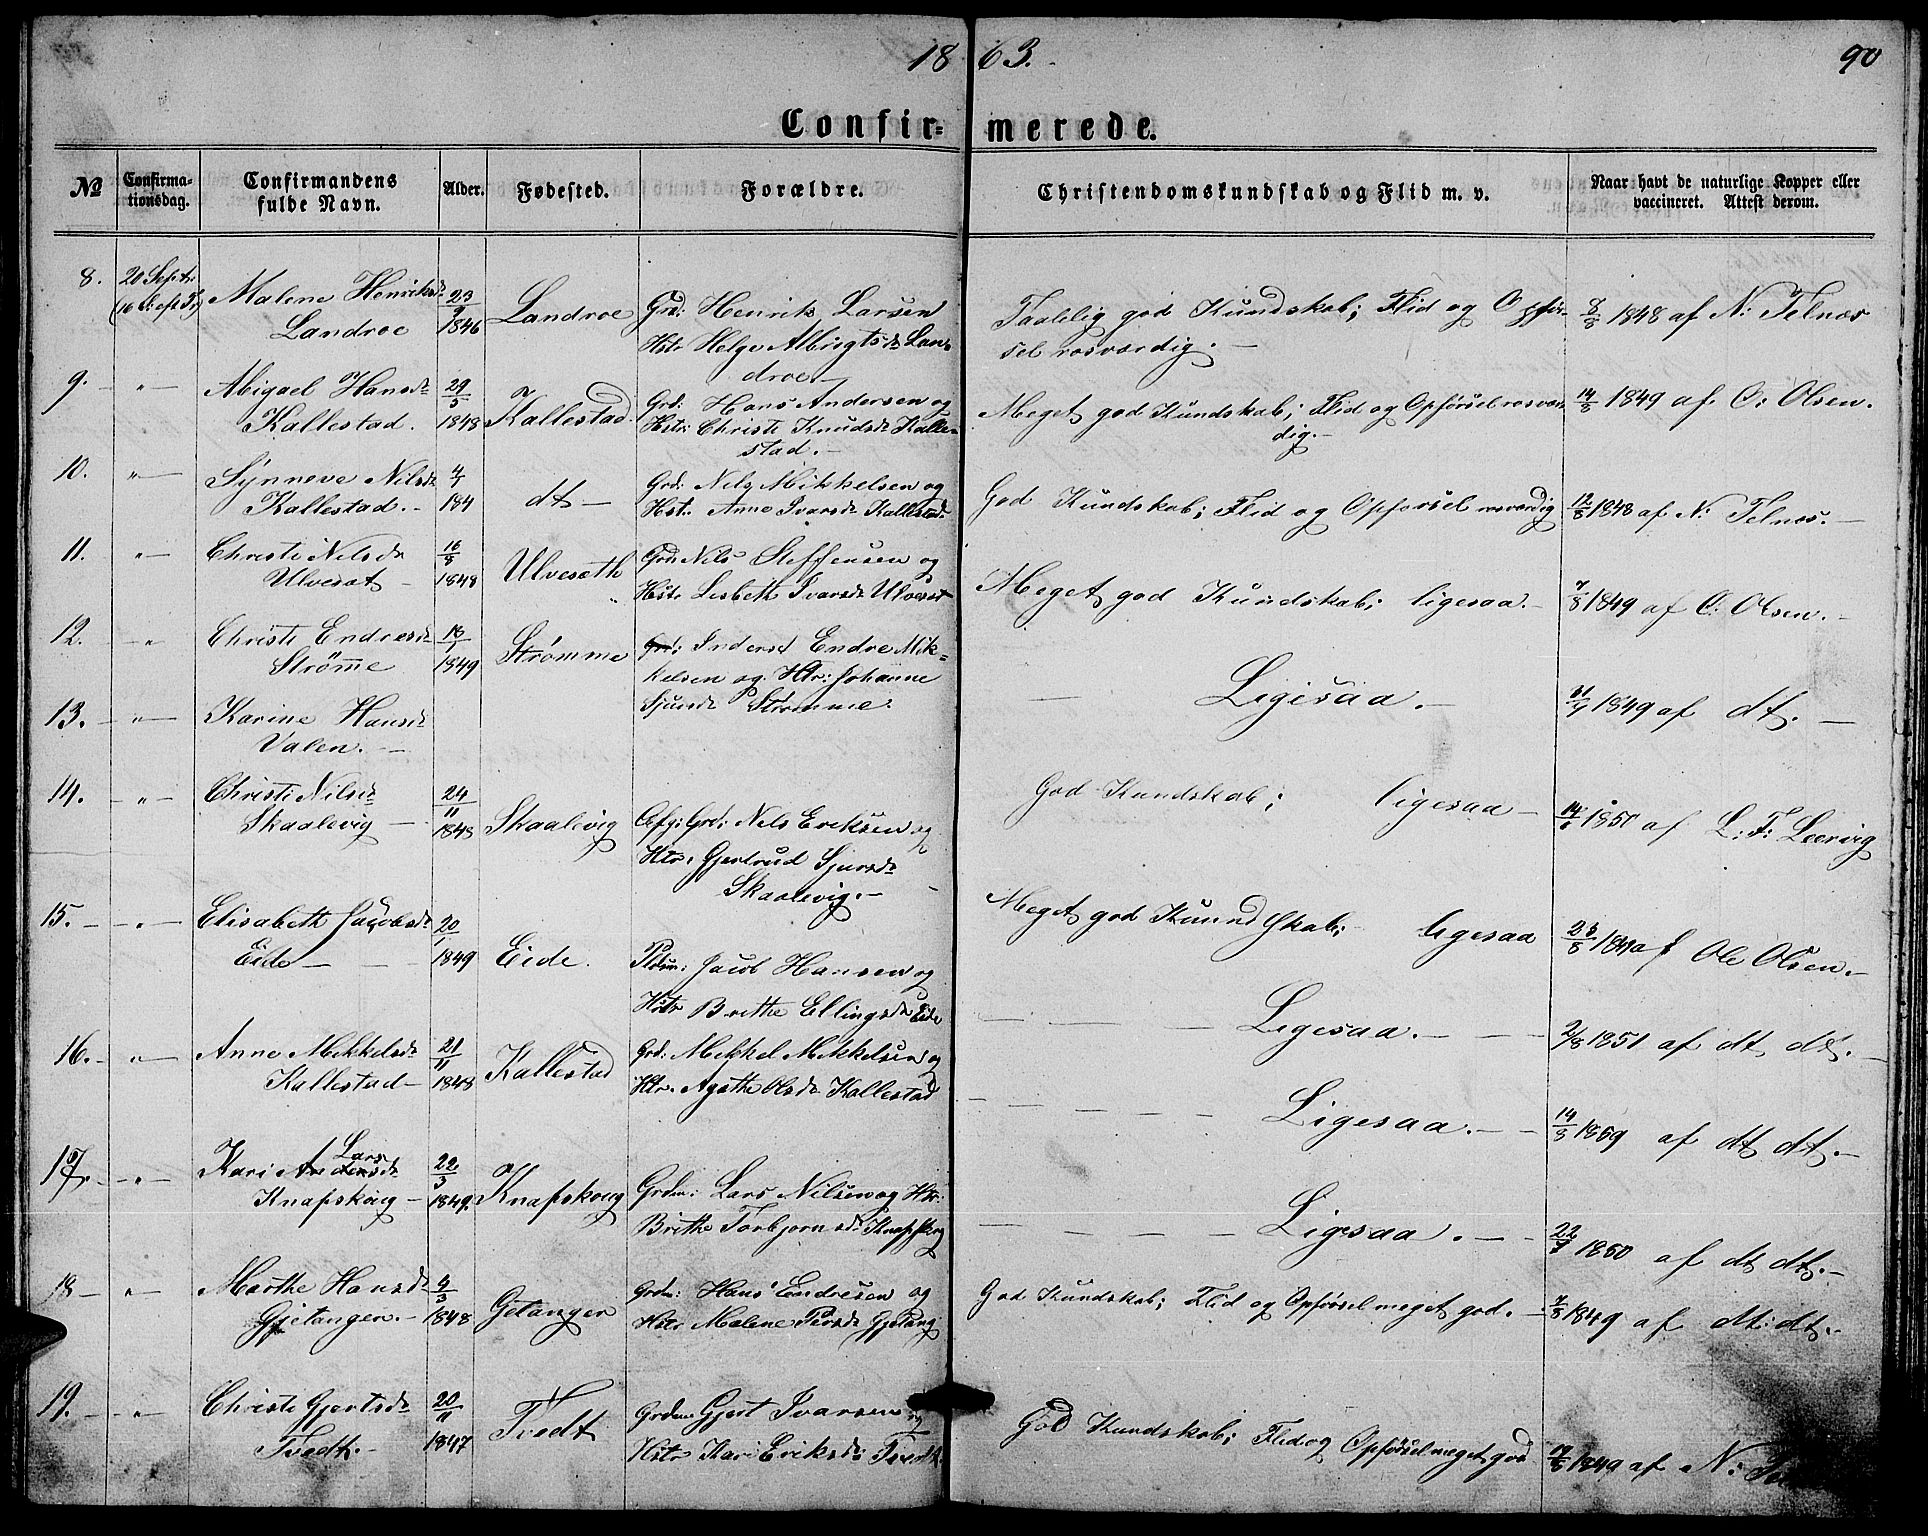 1863.
90
Confirmerede.
№
Confirmationsdag.
Confirmandens fulde Navn.
Alder.
Fødested.
Forældre.
Christendomskundskab og Flid m. v.
Naar havt de naturlige Kopper eller vaccineret. Attest derom.
8. 20 Septr. Malene Henriksd. 23/9 Landroe Grd: Henrik Larsen Taalelig god Kundskab; Flid og Opfør- 8/8 1848 af N: Telnæs
Landroe 1846 Hstr Helge Albrigtsd. Lan- sel rosværdig.
droe
9. " Abigael Hansd. 29/5 Kallestad Grd: Hans Andersen og Meget god Kundskab; Flid og Opførsel rosvær- 14/8 1849 af O: Olsen.
Kallestad. 1848 Hstr: Christi Knudsd. Kalle- dig.
stad.
10. " Synneve Nilsd. dt Grd: Nils Mikkelsen og God Kundskab; Flid og Opførsel rosværdig 12/8 1848 af N: Telnæs.
Kallestad. 184 Hst. Anne Ivarsd. Kallestad
11. " Christi Nilsd. 16/8 Ulvesæth Grd: Nils Steffensen og Meget god Kundskab; ligesaa. 7/8 1849 af O: Olsen.
Ulvesæt 1848 Hstr Lisbeth Ivarsd. Ulvesæt
12. " Christi Endresd. Strømme Inderst Endre Mik- Ligesaa. 1849 af dt.
Strøme 1849 kelsen og Htr: Johanne
Sjursd. Strømme.
13. " Karine Hansd.
Valen.
14. " Christi Nilsd. 24/11 Skaalevig Grd: Nils Eriksen og God Kundskab; ligesaa af L: F: Leervig
Skaalevig 1848 Htr: Gjertrud Sjursd.
Skaalevig.
15. " Elisabeth Jacobsd. 20/1 Eide. Jacob Hansen og Meget god Kundskab; ligesaa af Ole Olsen.
Eide 1849 Hstr Brithe Ellingsd. Eide
16. " Anne Mikkelsd. 21/11 Kallestad Grd: Mikkel Mikkelsen og Ligesaa. 2/8 1851 af dt dt.
Kallestad 1848 Htr. Agathe Olsd. Kallestad
17. " Kari Lars Andersd. 22/3 Knapskoug Grdm: Lars Nilsen og Htr: Ligesaa. 14/8 af dt dt.
Knapskoug 1849. Brithe Torbjørnsd. Knapskog
Ligesaa. 1850 af dt dt.
18 " Marthe Hansd. 4/3 Getanger Grdm: Hans Endresen og God Kundskab; Flid og Opførsel meget god. 7/8 1849 af dt: dt.
Gjetanger. 1848 Hstr Malene Persd. Gjetang
19. " Christi Gjertsd. 20/11 Tvedt Grdm Gjert Ivarsen og God Kundskab; Flid og Opførsel meget god 1849 af N:
Tvedt. 1847 Hstr Kari Eriksd: Tvedt.